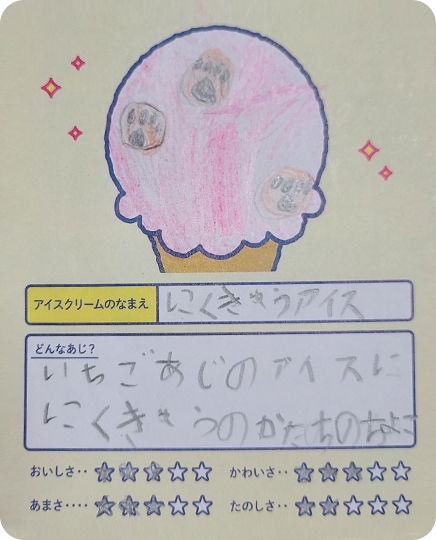 アイスクリームのなまえ にくきゅうアイス
どんなあじ?
いちごあじのアイスに
にくきゅうのかたちのちょこ
おいしさ‥ ★★★☆☆ かわいさ‥ ★★★☆☆
あまさ‥‥ ★★★☆☆ たのしさ‥ ★★☆☆☆